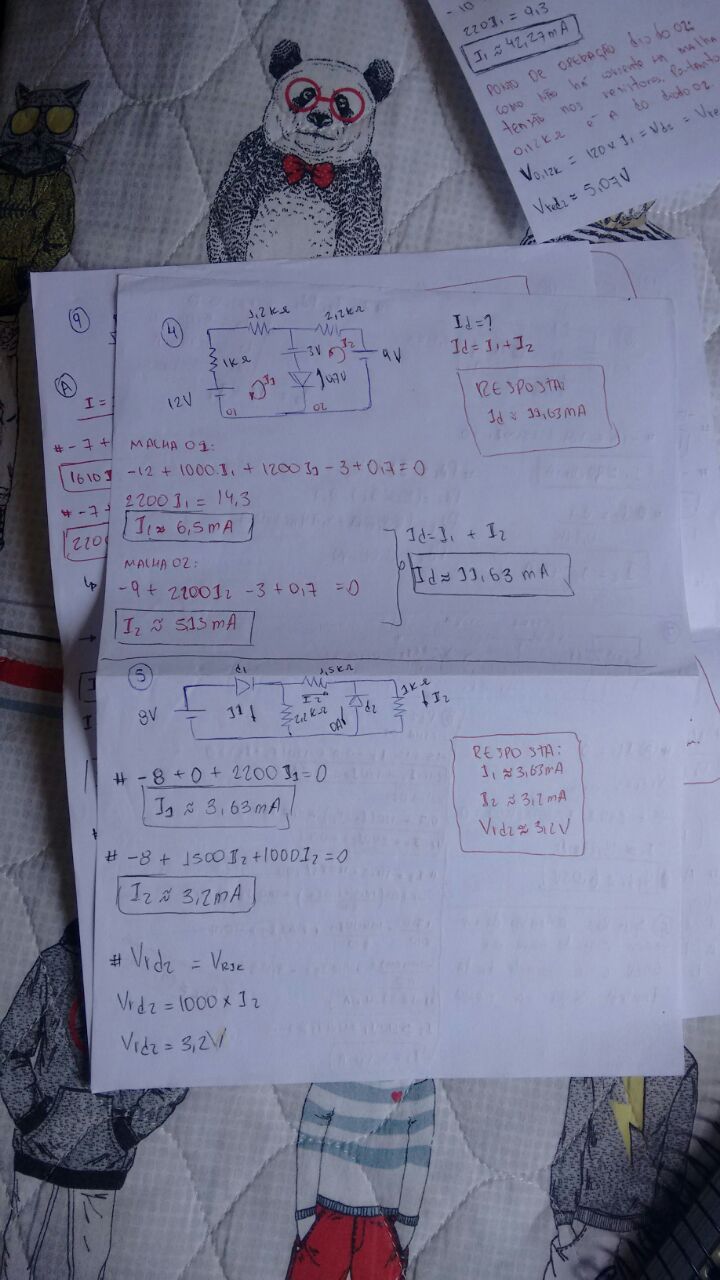 -10
220I₁ = 9,3
I₁ ≈ 42,27mA
PONTO DE OPERAÇÃO diodo 02:
como não há corrente na malha
tensão nos resistores. Portanto
0,12KΩ é A do diodo 02.
V0,12K = 120 x I₁ = Vd2 =
Vrd2 = 5,07V
9
A
I =
# -7 +
1610I
# -7 +
220
4
1,2KΩ
2,2KΩ
1KΩ
3V
I₂
9V
12V
I1
0,7V
01
02
Id = ?
Id = I1 + I2
RESPOSTA:
Id ≈ 11,63mA
MALHA 01:
-12 + 1000I₁ + 1200I1 - 3 + 0,7 = 0
2200I₁ = 14,3
I₁ ≈ 6,5mA
MALHA 02:
-9 + 2200I2 - 3 + 0,7 = 0
I₂ ≈ 513mA
Id = I1 + I2
Id ≈ 11,63 mA
5
d1
1,5KΩ
8V
I1
2,2KΩ
I2
0A
d2
1KΩ
I2
# -8 + 0 + 2200I1 = 0
I1 ≈ 3,63mA
# -8 + 1500I2 + 1000I2 = 0
I2 ≈ 3,2mA
# Vrd2 = VR1K
Vrd2 = 1000 x I2
Vrd2 = 3,2V
RESPOSTA:
I₁ ≈ 3,63mA
I2 ≈ 3,2mA
Vrd2 ≈ 3,2V